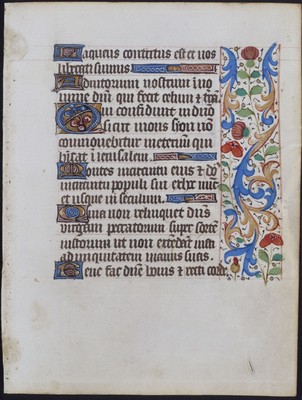 Laqueus contritus est et nos
liberati sumus
Adiutorium nostrum in no
mine dñi qui fecit celum et trã
Qui confidunt in dño
sicut mons syon nõ
commouebitur in eternum qui
habitat in ierusalem
Montes in circuitu eius et do
circuitu populi sui ex hoc nũc
et usque in seculum
Quia non relinquet dñs
virgam peccatorum super sorte
iustorum ut non extendãt iusti
ad iniquitatem manus suas
Bene fac dñe bonis et rectis corde